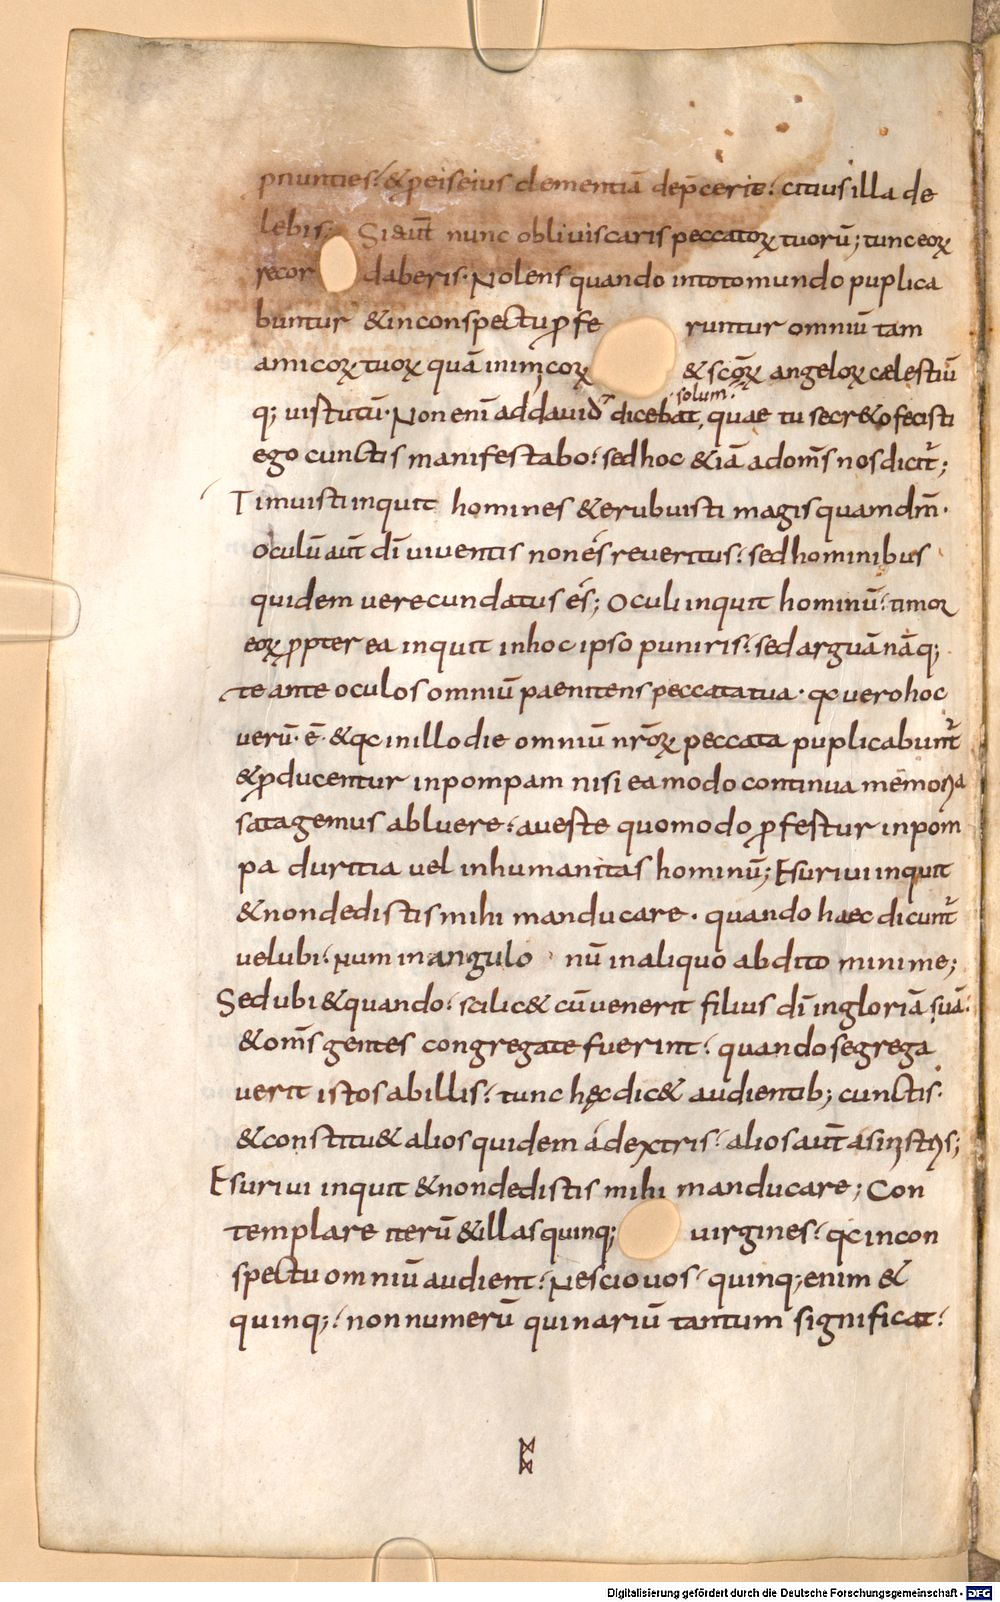 pnunties· & p eis eius clementiā dep̄ceris· citius illa de
lebis· Si aūt nunc obliviscaris peccatoꝝ tuorū; tunc eoꝝ
recor daberis· Nolens quando in toto mundo puplica
buntur & in conspectu ꝓfe runtur omniū tam
amicoꝝ tuoꝝ quā inimicoꝝ & sc̄oꝝ angeloꝝ cælestiū
q; virtutū· Non enī ad david dicebat solum· quae tu secr&o fecisti
ego cunctis manifestabo· sed hoc & iā ad om̄s nos dicit̄;
Timuisti inquit homines & erubuisti magis quam dm̄·
oculū aūt dī viventis non és reveritus· sed hominibus
quidem verecundatus és; Oculi inquit hominū· timor
eoꝝ ꝓpter ea inquit in hoc ipso puniris· sed arguā nāq;
te ante oculos omniū paenitens peccata tua· qꝺ vero hoc
verū· ē· & qꝺ in illo die omniū nr̄oꝝ peccata puplicabunt̄
& ꝓducentur in pompam nisi ea modo continua memoria
satagemus abluere· aueste quomodo ꝓfestur in pom
pa duritia vel inhumanitas hominū; Esurivi inquit
& non dedistis mihi manducare· quando haec dicunt̄
vel ubi· Num in angulo nū in aliquo abdito minime;
Sed ubi & quando· scilic& cū venerit filius dī in gloriā suā·
& om̄s gentes congregate fuerint· quando segrega
verit istos ab illis· tunc hęc dic& audientib; cunctis·
& constitu& alios quidem a dextris· alios aūt a sinistris;
Esurivi inquit & non dedistis mihi manducare; Con
templare iterū & illas quinq; virgines· qꝺ in con
spectu omniū audient· Nescio vos· quinq; enim &
quinq;· non numerū quinariū tantum significat·
Digitalisierung gefördert durch die Deutsche Forschungsgemeinschaft - DFG